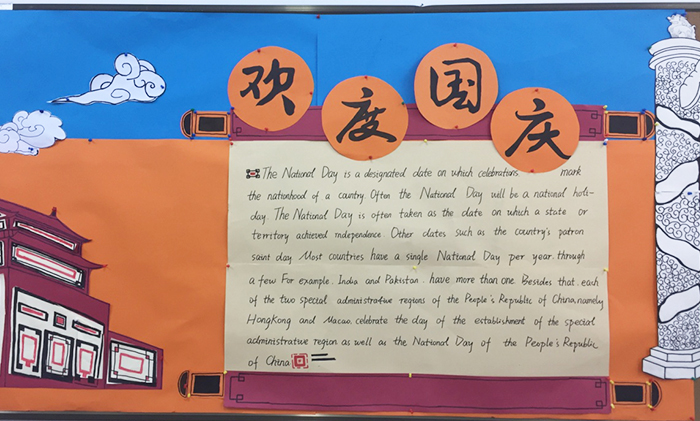 欢度国庆
The National Day is a designated date on which celebrations mark
the nationhood of a country. Often the National Day will be a national holi-
day. The National Day is often taken as the date on which a state or
territory achieved independence. Other dates such as the country's patron
saint day. Most countries have a single National Day per year. through
a few For example. India and Pakistan. have more than one. Besides that. each
of the two special administrative regions of the People's Republic of China, namely
HongKong and Macao. celebrate the day of the establishment of the special
administrative region as well as the National Day of the People's Republic
of China